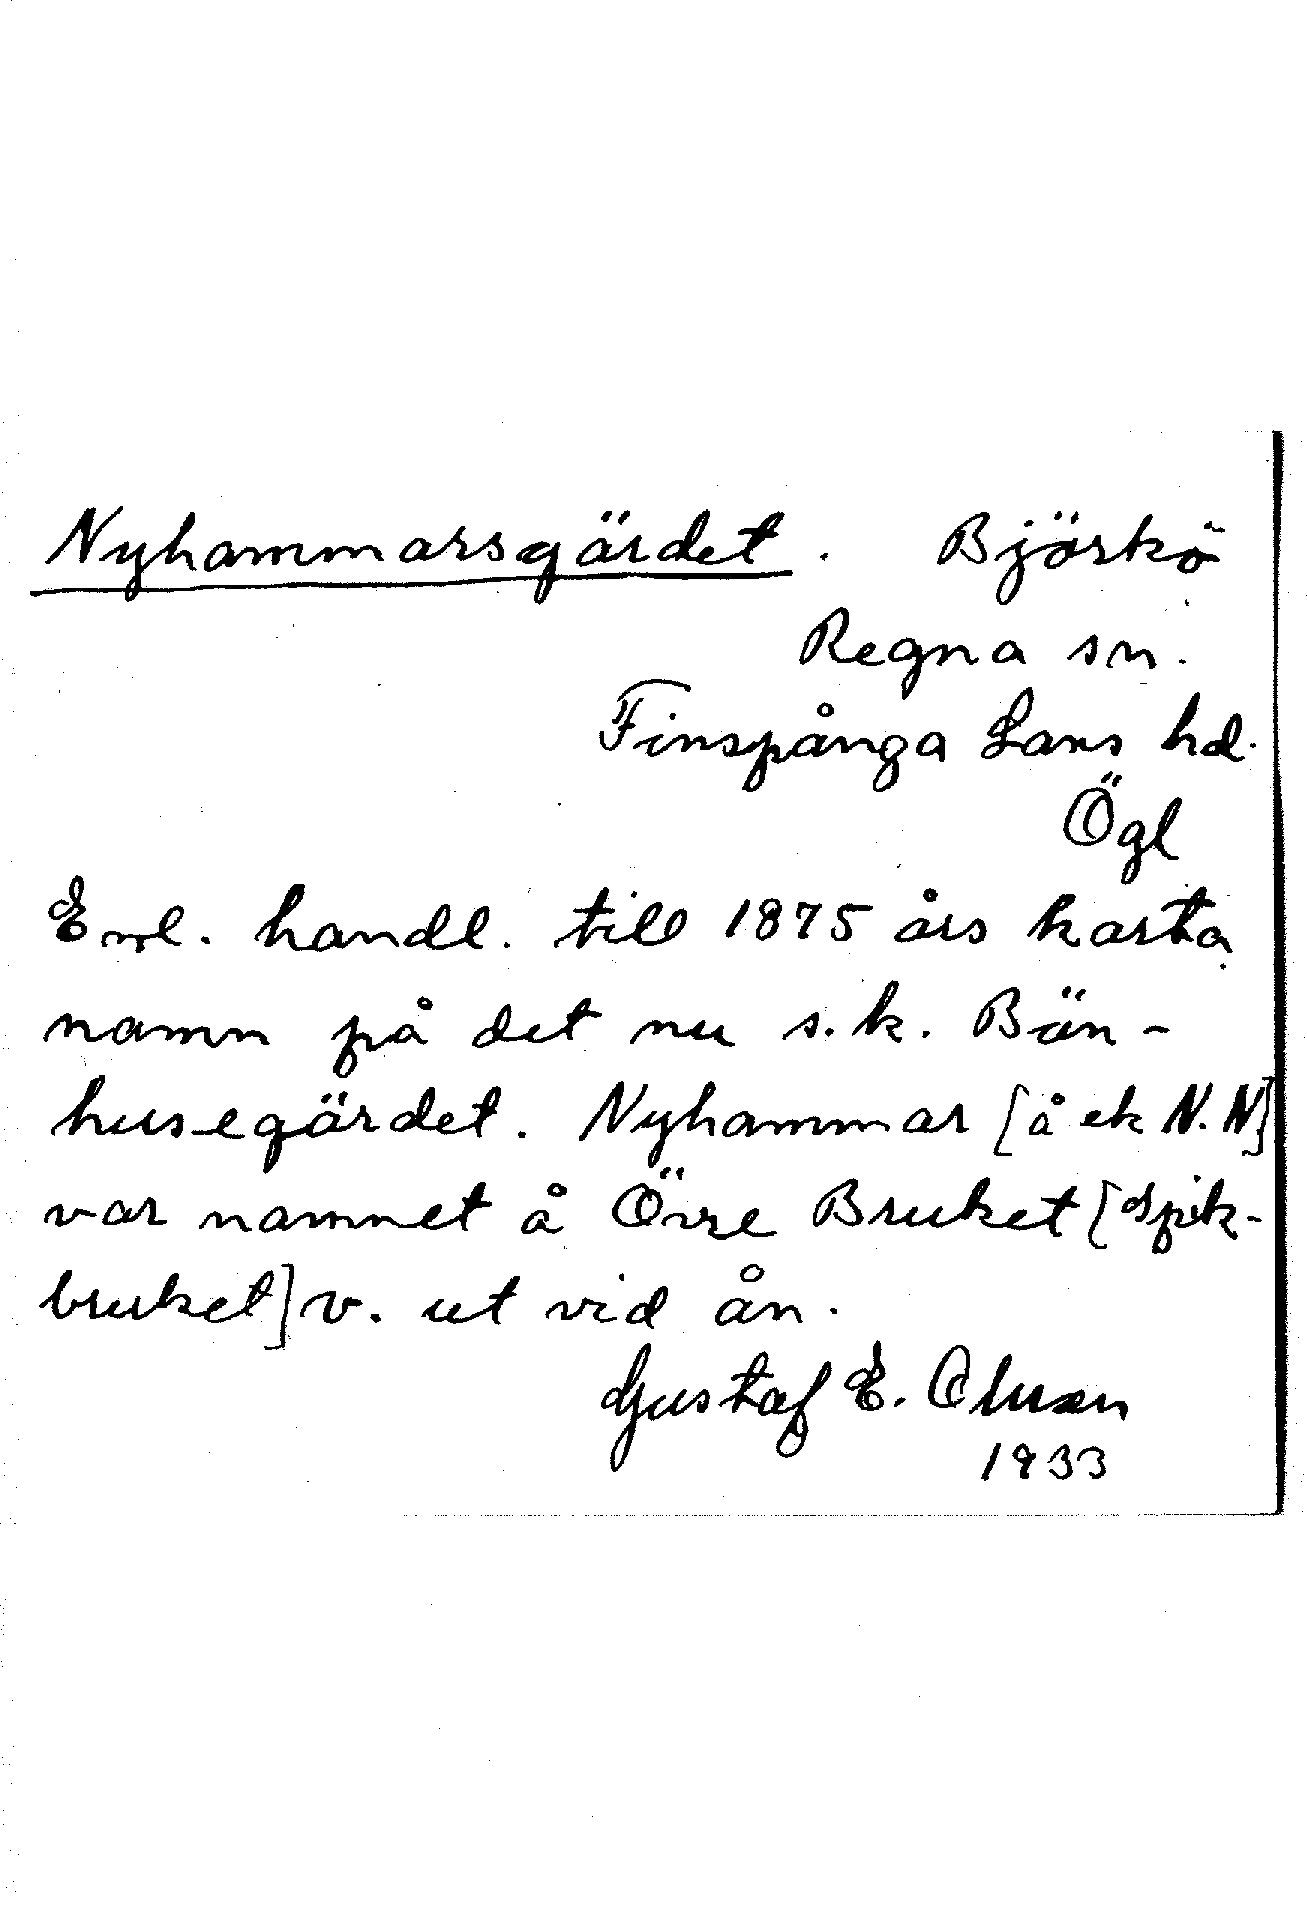 Nyhammarsgärdet. Björkö
Regna sn.
Finspånga Läns hd.
Ögl
Enl. handl. till 1875 års karta
namn på det nu s.k. Bän-
husegärdet. Nyhammar [å ek N.N]
var namnet å Övre Bruket [Spik-
bruket] v. ut vid ån.
Gustaf E. Olsson
1933